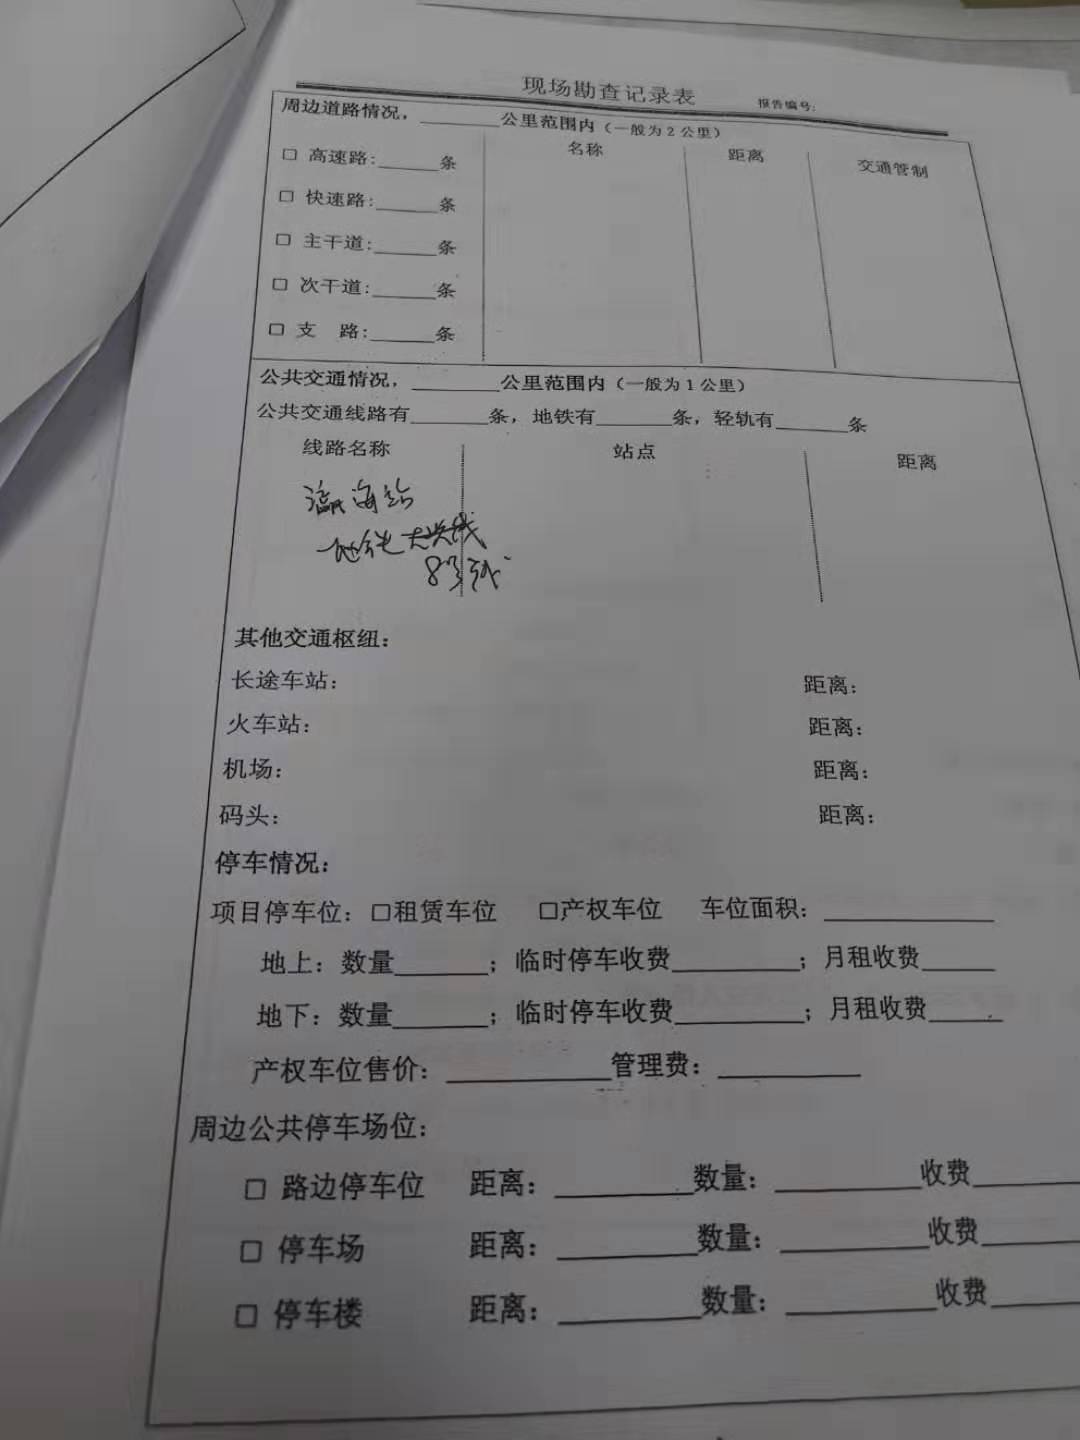 现场勘查记录表
报告编号:
周边道路情况，______公里范围内（一般为2公里）
名称 距离 交通管制
□ 高速路:_____条
□ 快速路:_____条
□ 主干道:_____条
□ 次干道:_____条
□ 支 路:_____条
公共交通情况，______公里范围内（一般为1公里）
公共交通线路有______条，地铁有______条，轻轨有______条
线路名称 站点 距离
瀛海站
地铁大兴线
8号线
其他交通枢纽：
长途车站： 距离：
火车站： 距离：
机场： 距离：
码头： 距离：
停车情况：
项目停车位：□租赁车位 □产权车位 车位面积：____________
地上：数量______；临时停车收费________；月租收费_____
地下：数量______；临时停车收费________；月租收费_____
产权车位售价：__________管理费：_________
周边公共停车场位：
□ 路边停车位 距离：________数量：________收费______
□ 停车场 距离：________数量：________收费______
□ 停车楼 距离：________数量：________收费______